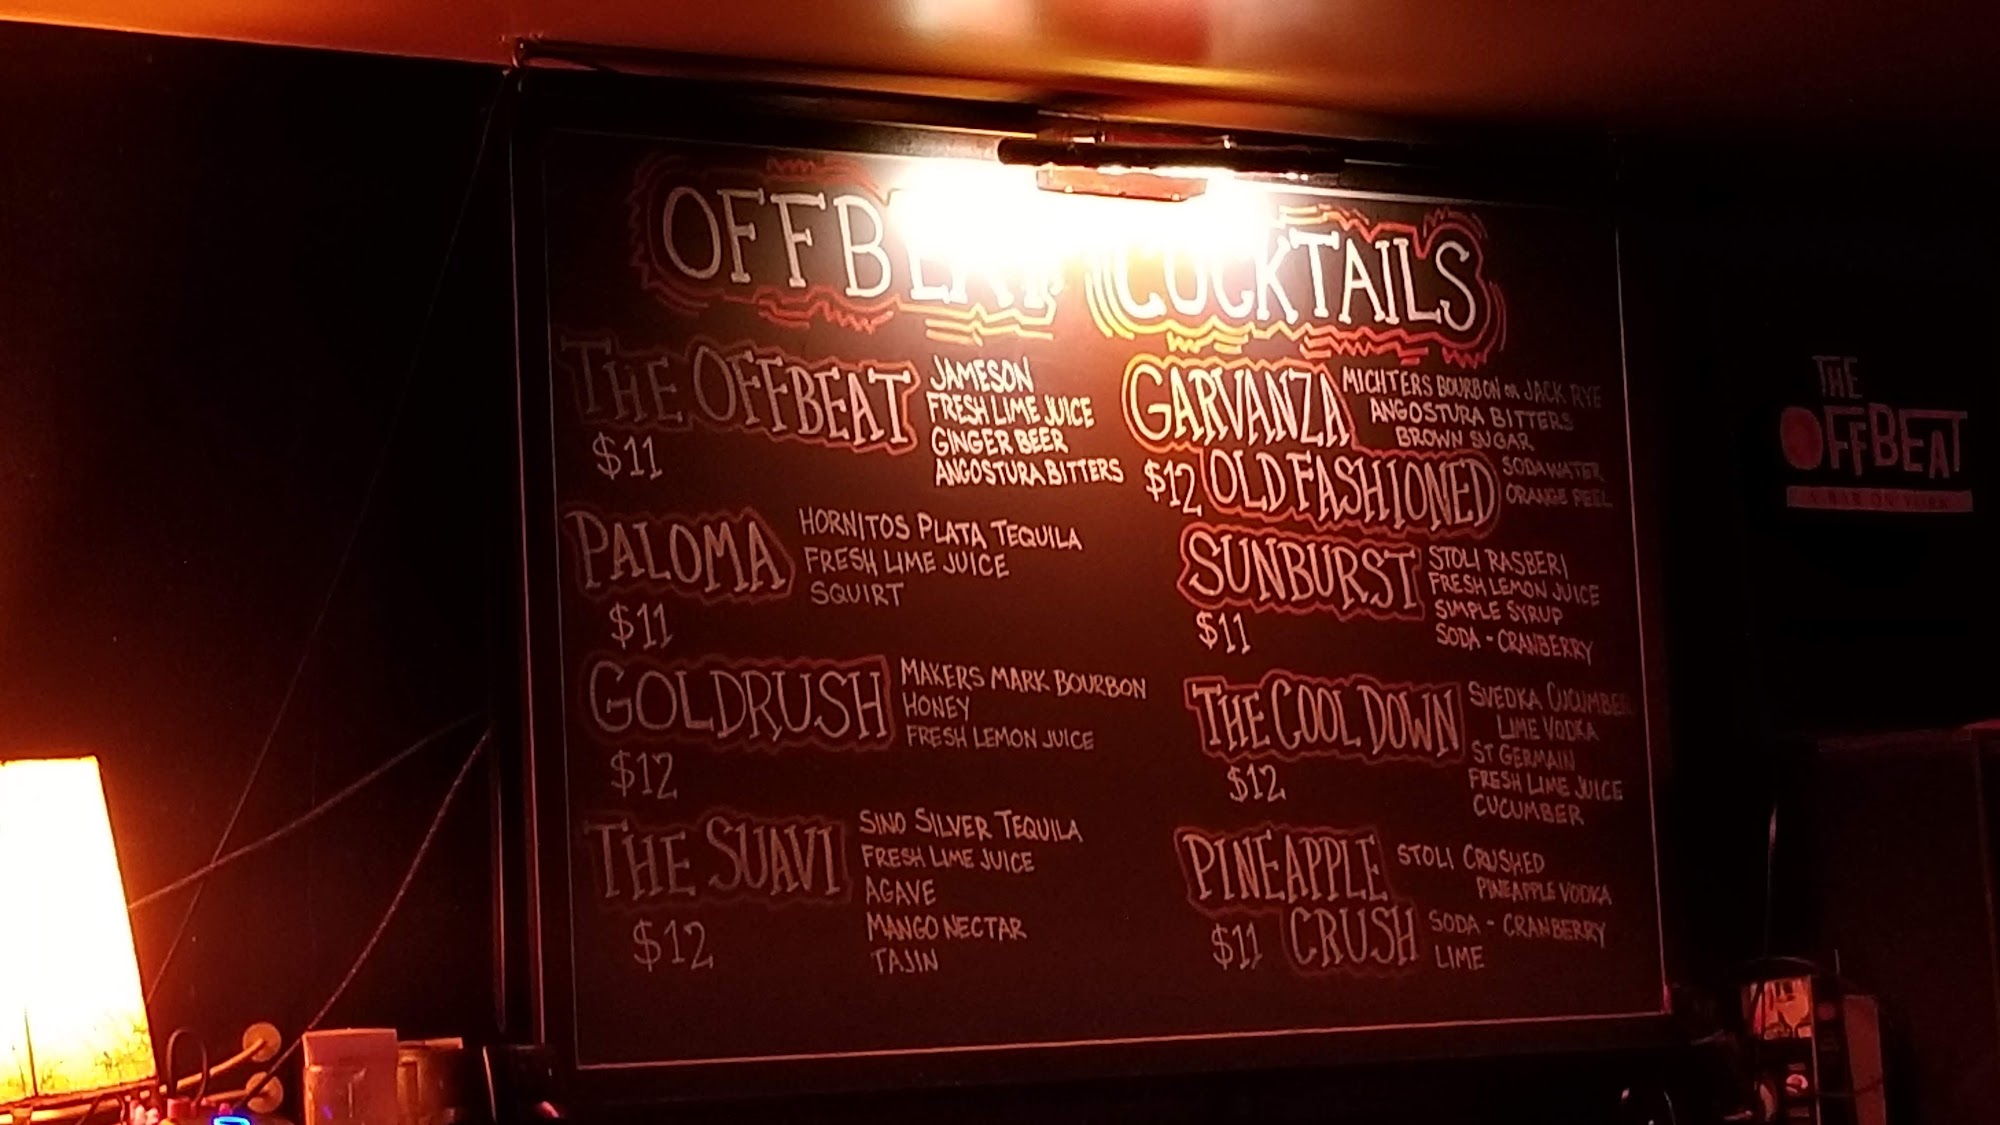 OFFBEAT COCKTAILS
THE OFFBEAT
$11
JAMESON
FRESH LIME JUICE
GINGER BEER
ANGOSTURA BITTERS
PALOMA
$11
HORNITOS PLATA TEQUILA
FRESH LIME JUICE
SQUIRT
GOLDRUSH
$12
MAKERS MARK BOURBON
HONEY
FRESH LEMON JUICE
THE SUAVI
$12
SINO SILVER TEQUILA
FRESH LIME JUICE
AGAVE
MANGO NECTAR
TAJIN
GARVANZA
$12 OLD FASHIONED
MICHTERS BOURBON OR JACK RYE
ANGOSTURA BITTERS
BROWN SUGAR
SODA WATER
ORANGE PEEL
SUNBURST
$11
STOLI RASBERI
FRESH LEMON JUICE
SIMPLE SYRUP
SODA - CRANBERRY
THE COOL DOWN
$12
SVEDKA CUCUMBER
LIME VODKA
ST GERMAIN
FRESH LIME JUICE
CUCUMBER
PINEAPPLE
$11 CRUSH
STOLI CRUSHED
PINEAPPLE VODKA
SODA - CRANBERRY
LIME
THE
OFFBEAT
A BAR ON YORK